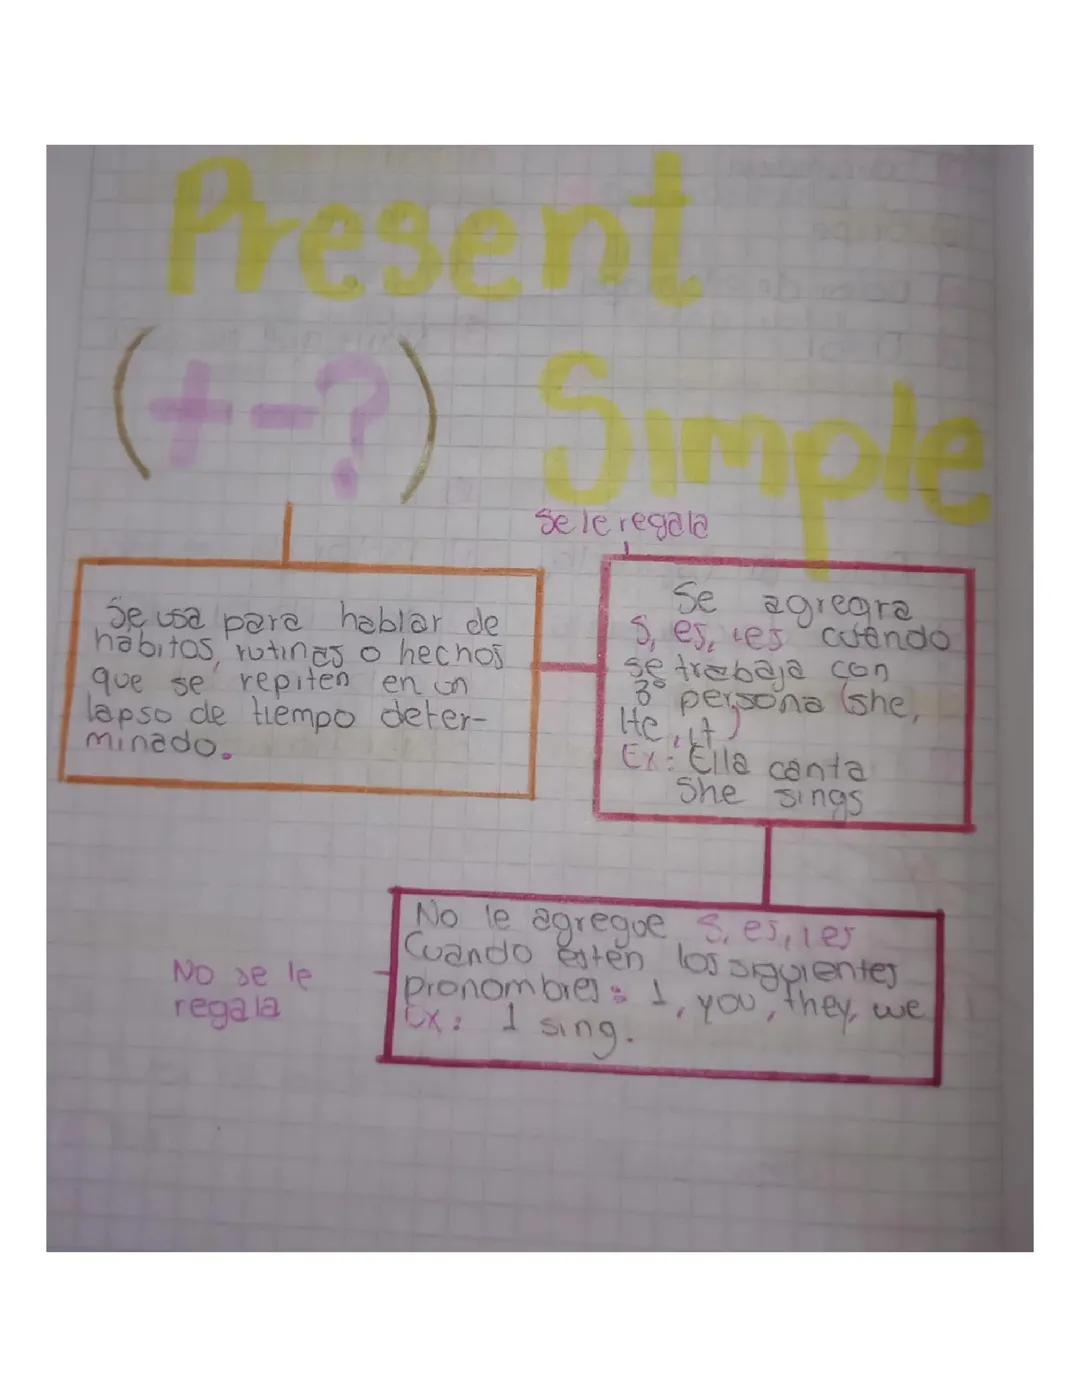 Present
(+-?) Simple
Se le regala
Se usa para hablar de
hábitos, rutinas o hechos
que se repiten en un
lapso de tiempo deter-
minado.
Se agregra
s, es, ies cuando
se trabaja con
3° persona (she,
He, it)
Ex: Ella canta
She sings
No se le
regala
No le agregue s, es, ies
Cuando estén los siguientes
pronombres: I, you, they, we
Ex: I sing.